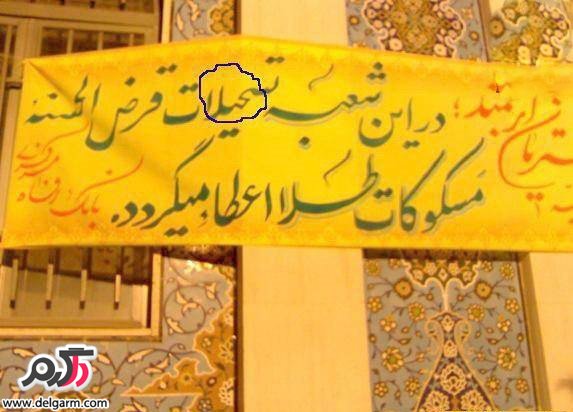 تریان ارجمند؛
در این شعبه تسحیلات قرض الحسنه
مسکوکات طلا اعطاء میگردد.
بانک رفاه
دلگرم
www.delgarm.com